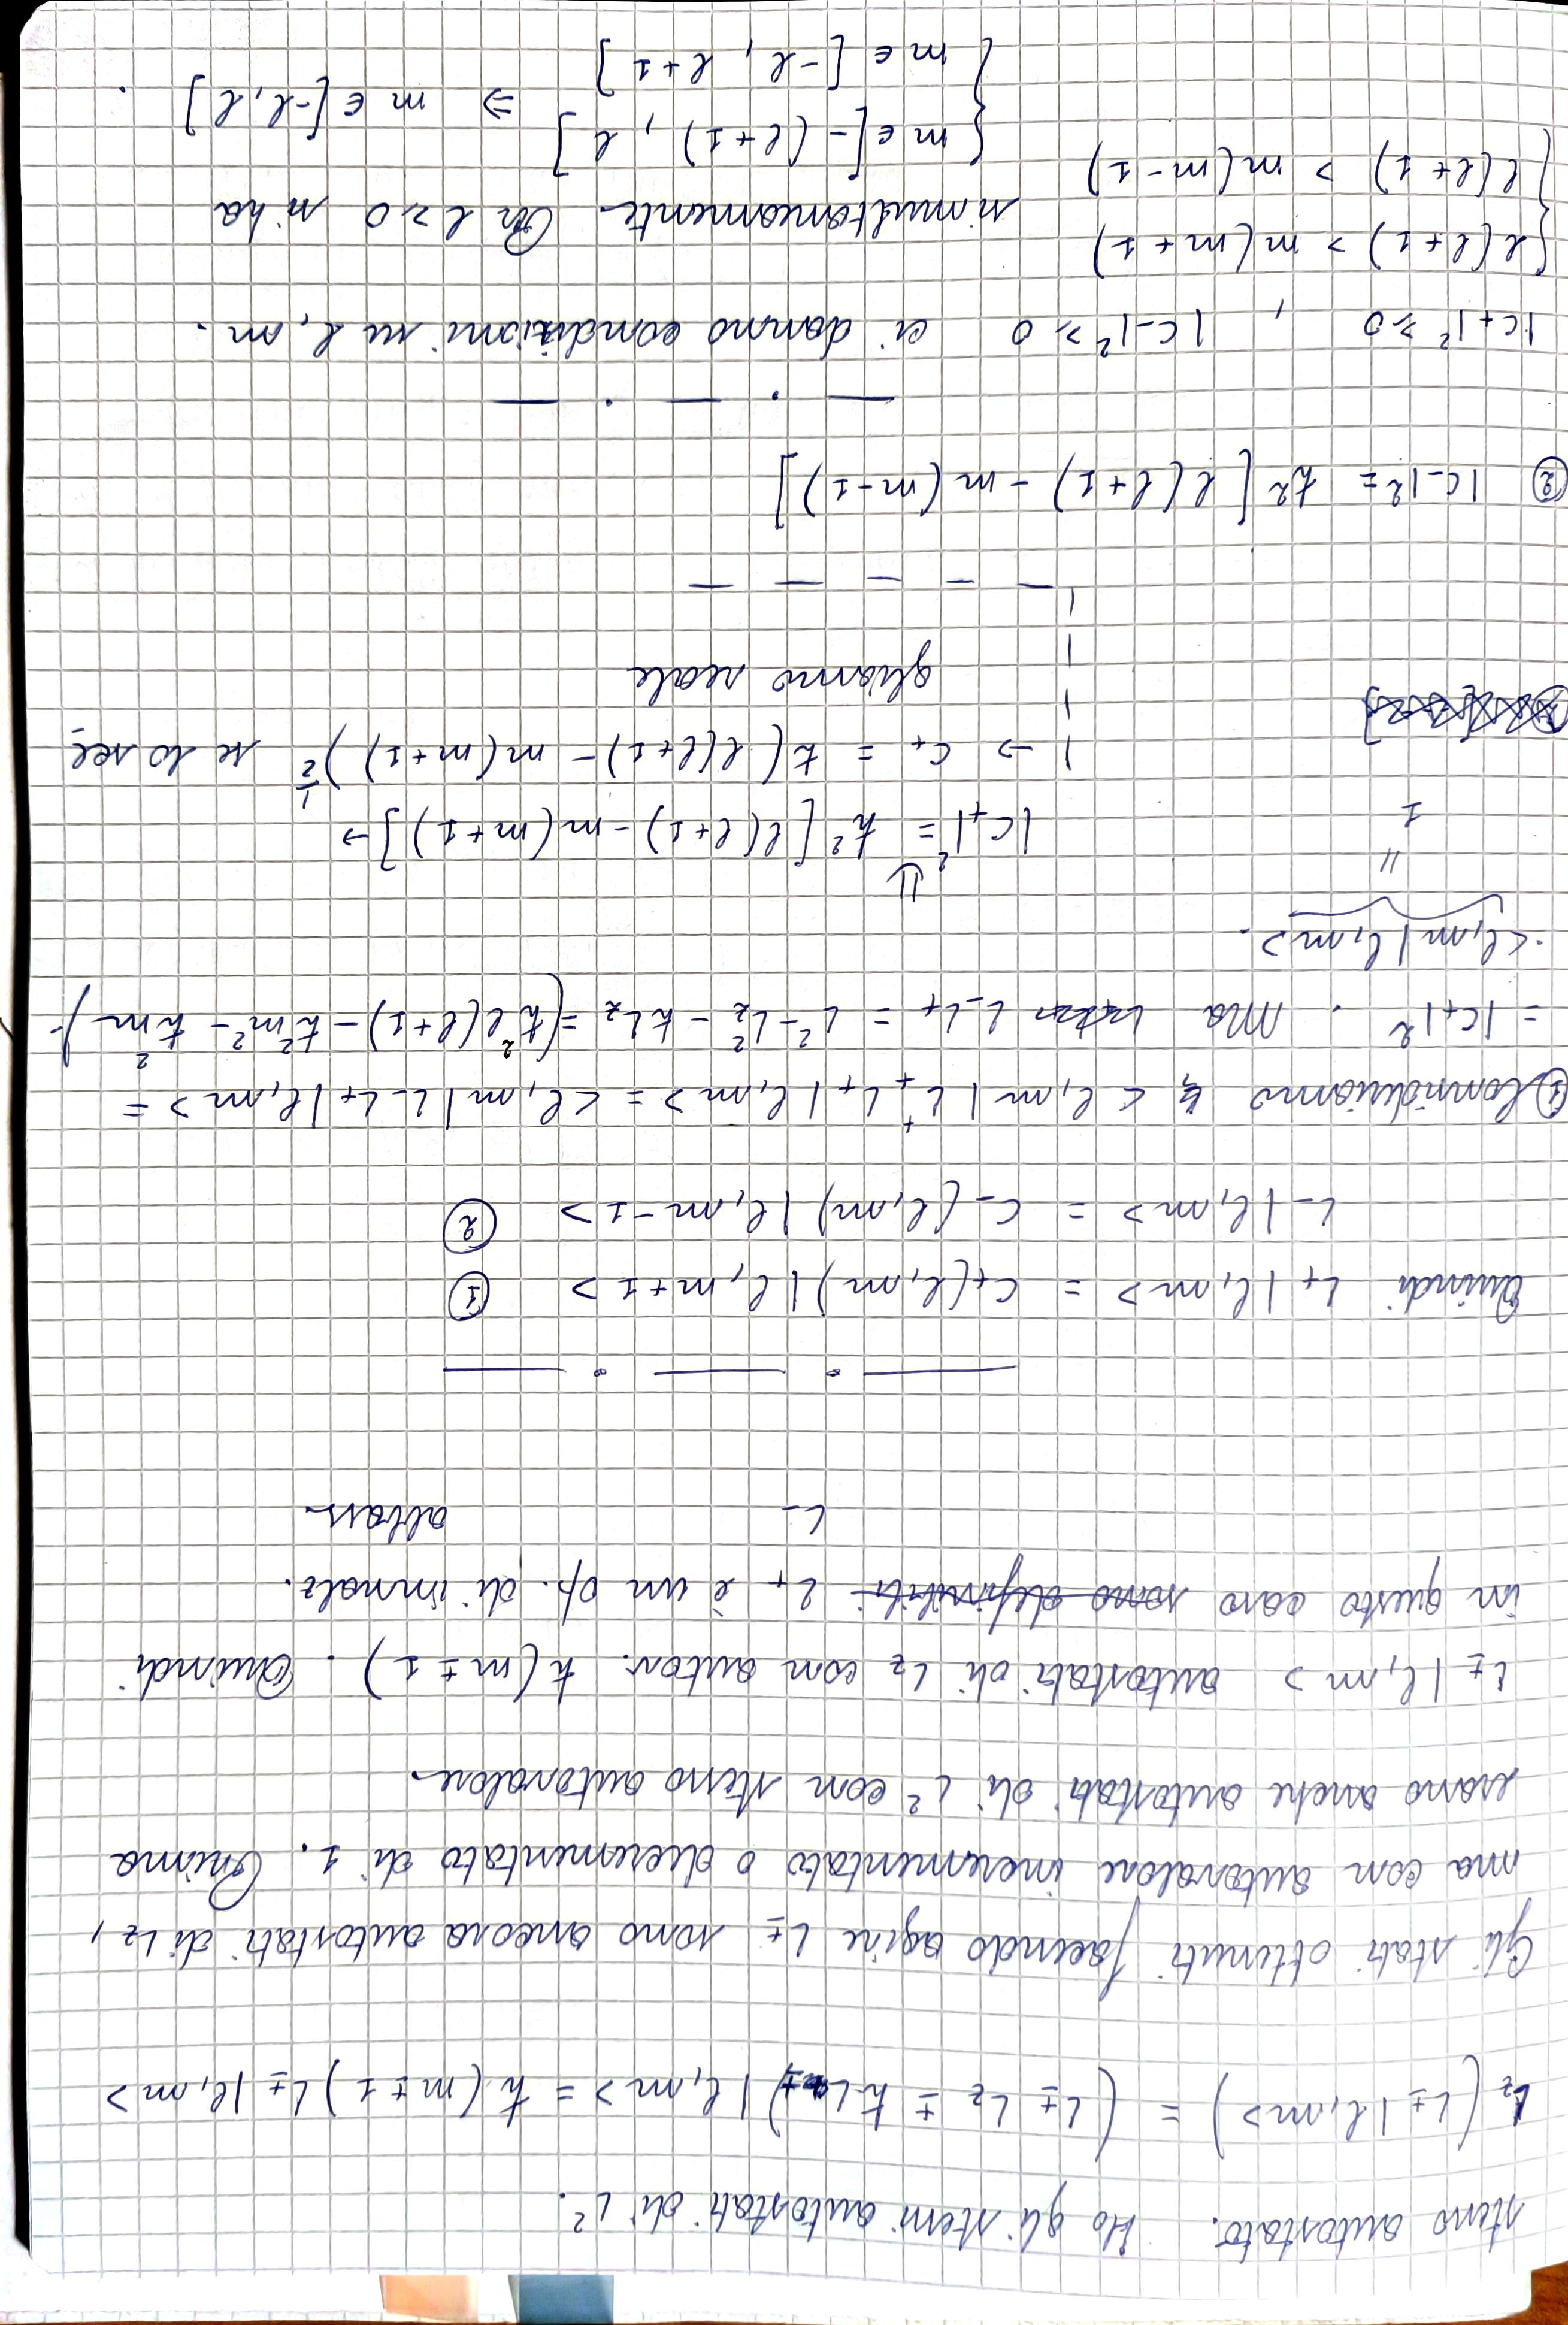 stesso autostato. Ho gli stessi autostati di L².
L_z (L± |l,m>) = (L± L_z ± ħL±) |l,m> = ħ(m±1) L± |l,m>
Gli stati ottenuti facendo agire L± sono ancora autostati di L_z,
ma con autovalore incrementato o decrementato di 1. Prima
erano anche autostati di L² con stesso autovalore.
L± |l,m> autostati di L_z con autov. ħ(m±1). Quindi
in questo caso sono definibili L₊ è un op. di innalz.
L₋ abbass.
Quindi L₊ |l,m> = C₊(l,m) |l,m+1> ①
L₋ |l,m> = C₋(l,m) |l,m-1> ②
① Consideriamo <l,m| L₊⁺ L₊ |l,m> = <l,m| L₋ L₊ |l,m> =
= |C₊|². Ma L₋L₊ = L² - L_z² - ħL_z = (ħ²l(l+1) - ħ²m² - ħ²m)·
·<l,m|l,m>.
"
1
⇓
|C₊|² = ħ² [l(l+1) - m(m+1)] →
→ C₊ = ħ(l(l+1) - m(m+1))^½ se lo sce
gliamo reale
② |C₋|² = ħ² [l(l+1) - m(m-1)]
|C₊|² ≥ 0 , |C₋|² ≥ 0 ci danno condizioni su l, m.
{ l(l+1) > m(m+1)
{ l(l+1) > m(m-1)
simultaneamente. Per l ≥ 0 si ha
{ m ∈ [-(l+1), l]
{ m ∈ [-l, l+1]
⇒ m ∈ [-l, l] .